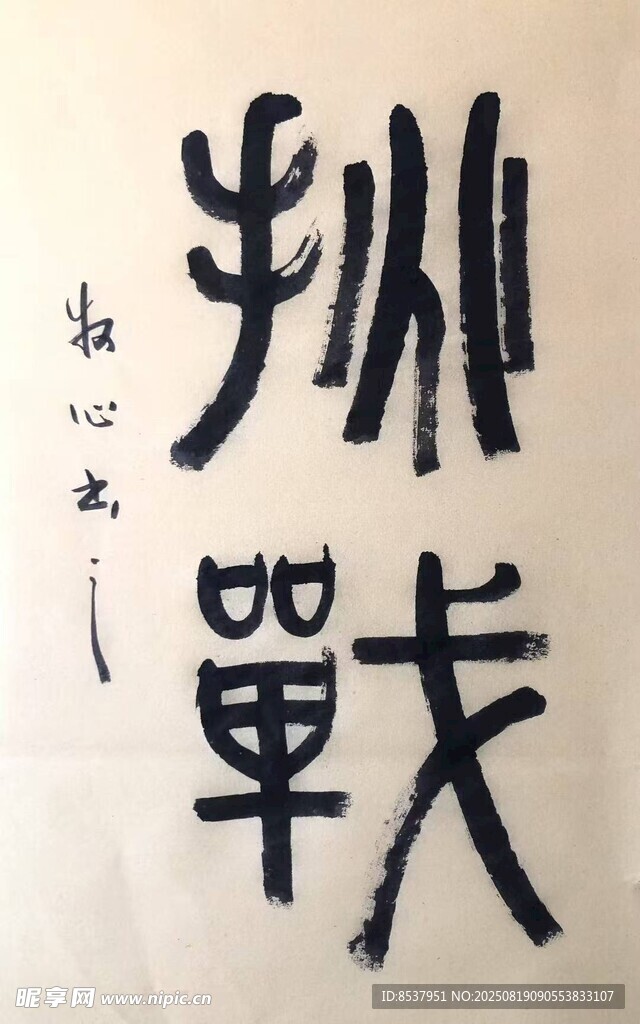 挑戰
牧心书之
昵享网 www.nipic.cn
ID:8537951 NO:20250819090553833107